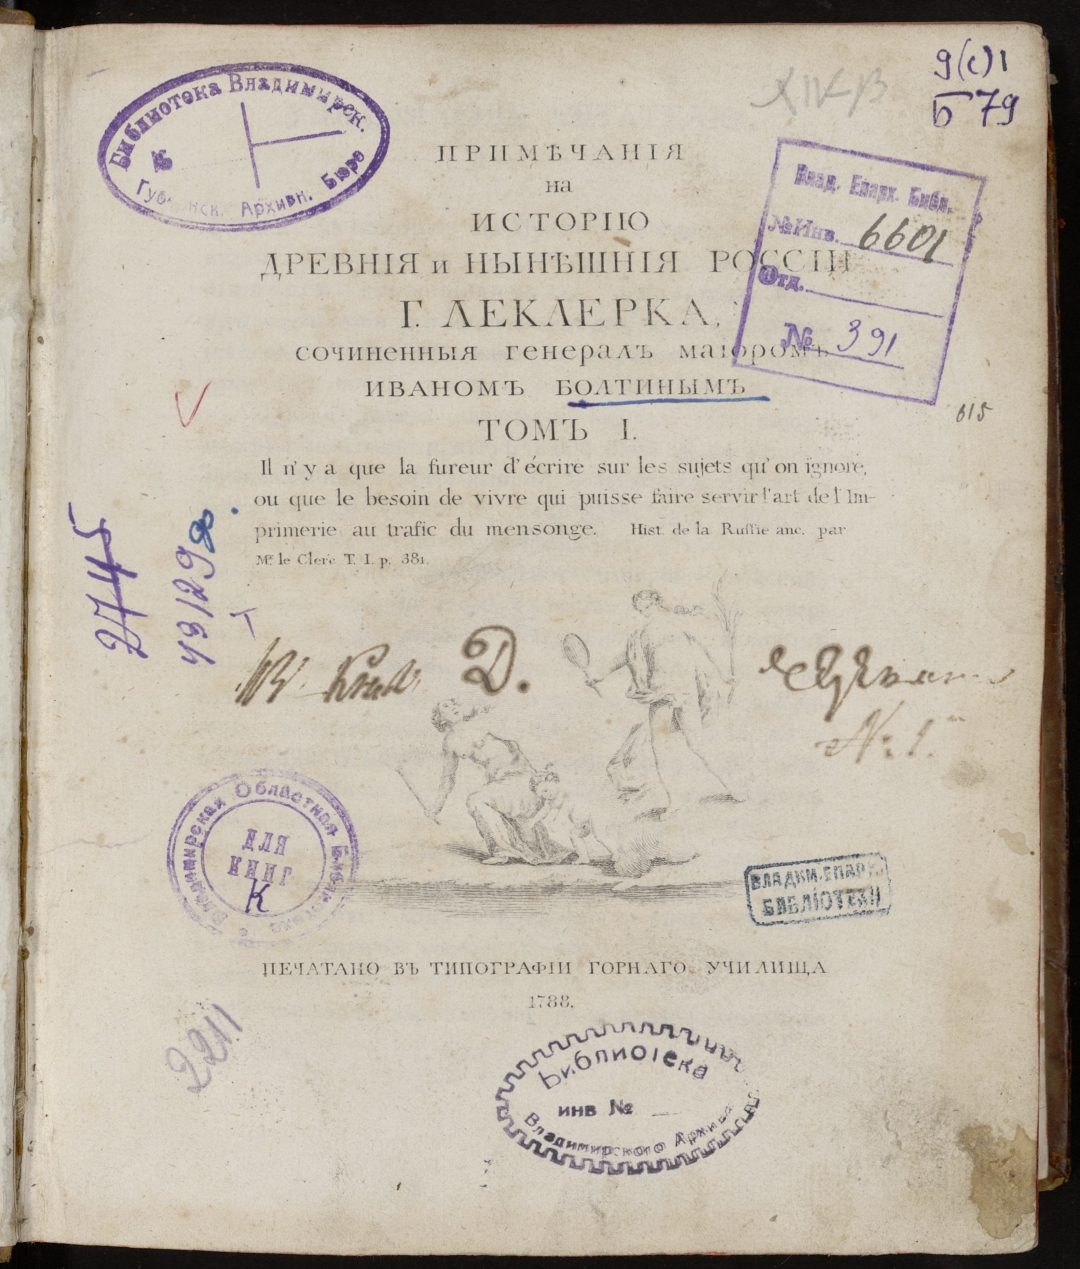 9(с)1
Б 79
Библиотека Владимирск.
Губ нск. Архивн. Бюро
ПРИМѢЧАНІЯ
на
ИСТОРІЮ
ДРЕВНІЯ и НЫНѢШНІЯ РОССІИ
Г. ЛЕКЛЕРКА,
СОЧИНЕННЫЯ ГЕНЕРАЛЪ МАІОРОМЪ
ИВАНОМЪ БОЛТИНЫМЪ
ТОМЪ I.
Влад. Епарх. Библ.
№ Инв. 6601
Отд.
№ 391
615
Il n'y a que la fureur d'écrire sur les sujets qu'on ignore,
ou que le besoin de vivre qui puisse faire servir l'art de l'Im-
primerie au trafic du mensonge. Hist. de la Russie anc. par
Mr le Clerc T. I. p. 381.
2745
1
Д.
№ 1.
Владимирская Областная Библиотека
ДЛЯ
КНИГ
К
ВЛАДИМ. ЕПАРХ.
БИБЛІОТЕКИ
ПЕЧАТАНО ВЪ ТИПОГРАФІИ ГОРНАГО УЧИЛИЩА
1788.
2211
Библиотека
ИНВ №
Владимирского Архива